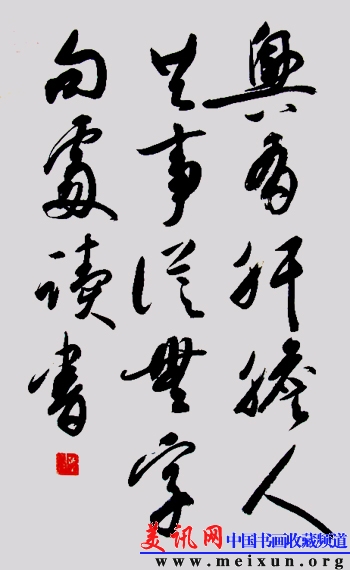 與有肝膽人
共事從無字
句處讀書
美讯网
中国书画收藏频道
www.meixun.org